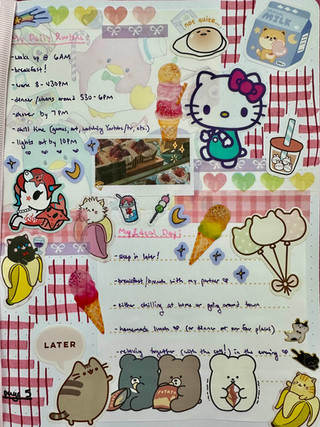 My Daily Routine!
not quite...
MILK
- wake up @ 6AM
- breakfast!
- work 8-430PM
- dinner/chores around 530-6PM
- shower by 7PM
- chill time (games, art, watching Youtube/tv, etc.)
- lights out by 10PM
My Ideal Day:
- sleep in later!
- breakfast/brunch with my partner
- either chilling at home or going around town
- homemade lunch (or dinner at our fav places)
- relaxing together (with the cats!) in the evening
LATER
POTATO
page 5